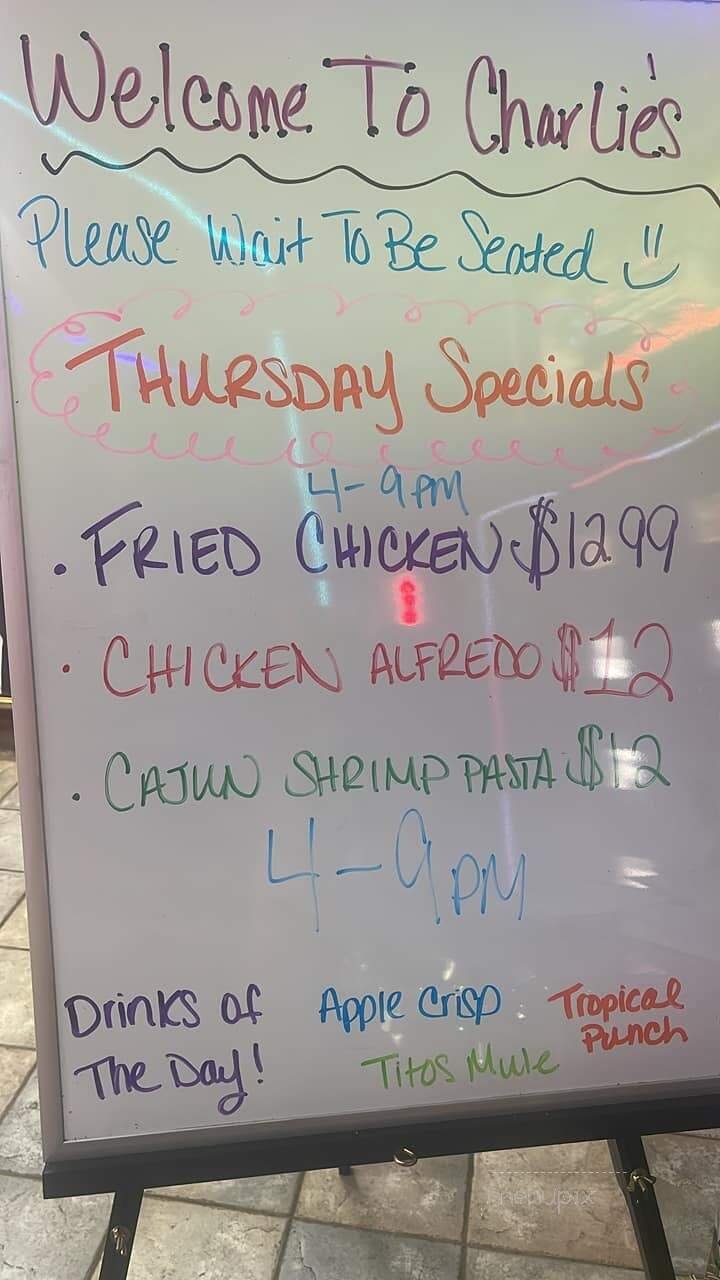 Welcome To Charlie's
Please Wait To Be Seated
THURSDAY Specials
4-9PM
• FRIED CHICKEN $12.99
• CHICKEN ALFREDO $12
• CAJUN SHRIMP PASTA $12
4-9PM
Drinks of The Day!
Apple Crisp
Tropical Punch
Titos Mule